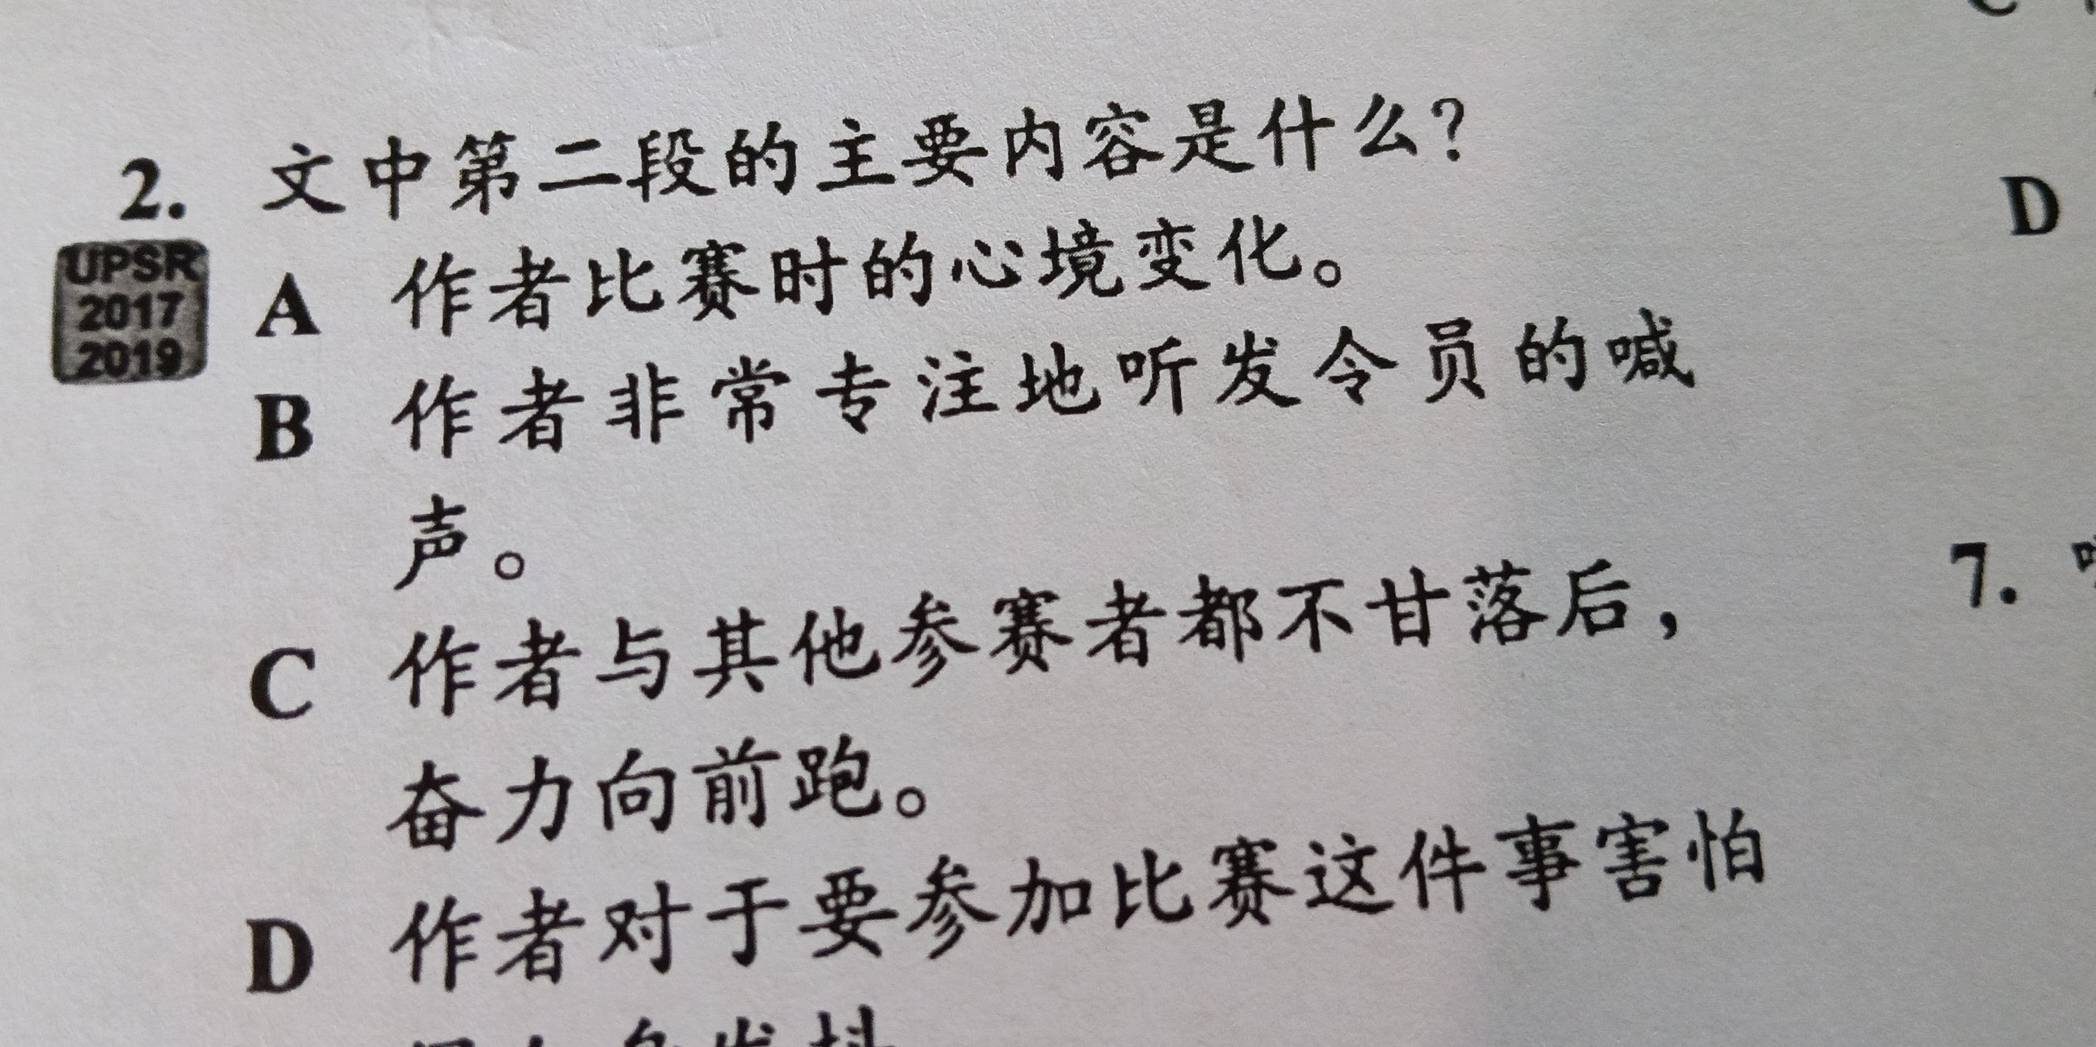 2. 文中第二段的主要内容是什么?
UPSR
2017
2019
A 作者比赛时的心境变化。
B 作者非常专注地听发令员的喊
声。
C 作者与其他参赛者都不甘落后，
奋力向前跑。
D 作者对于要参加比赛这件事害怕
D
7.